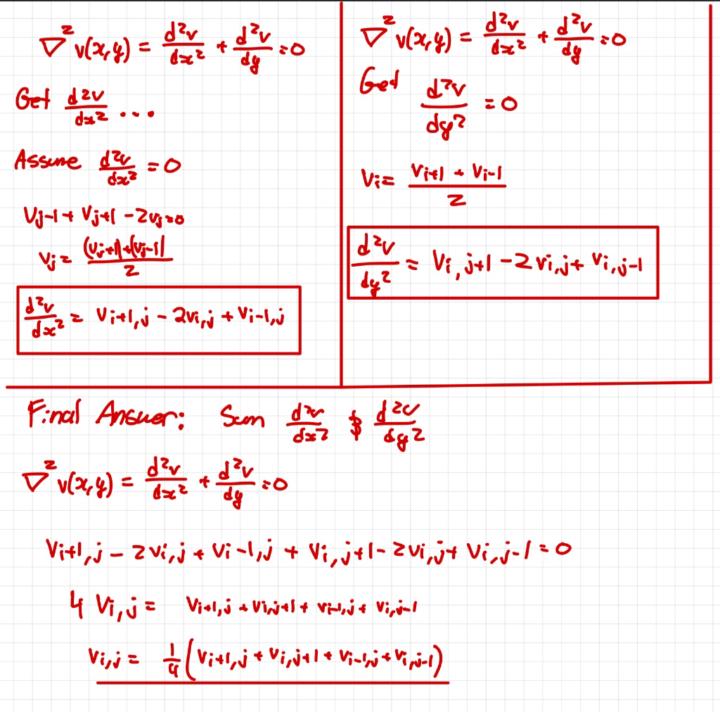 ∇² v(x,y) = d²v/dx² + d²v/dy = 0
Get d²v/dx² ...
Assume d²v/dx² = 0
Vj-1 + Vj+1 - 2vj = 0
vj = (vj+1)+(vj-1)/2
d²v/dx² = Vi+1,j - 2vi,j + Vi-1,j
∇² v(x,y) = d²v/dx² + d²v/dy = 0
Get d²v/dy² = 0
Vi = Vi+1 + Vi-1/2
d²v/dy² = Vi,j+1 - 2vi,j + Vi,j-1
Final Answer: Sum d²v/dx² & d²v/dy²
∇² v(x,y) = d²v/dx² + d²v/dy = 0
Vi+1,j - 2vi,j + Vi-1,j + Vi,j+1 - 2vi,j + Vi,j-1 = 0
4 Vi,j = Vi+1,j + Vi,j+1 + Vi-1,j + Vi,j-1
Vi,j = 1/4 (Vi+1,j + Vi,j+1 + Vi-1,j + Vi,j-1)